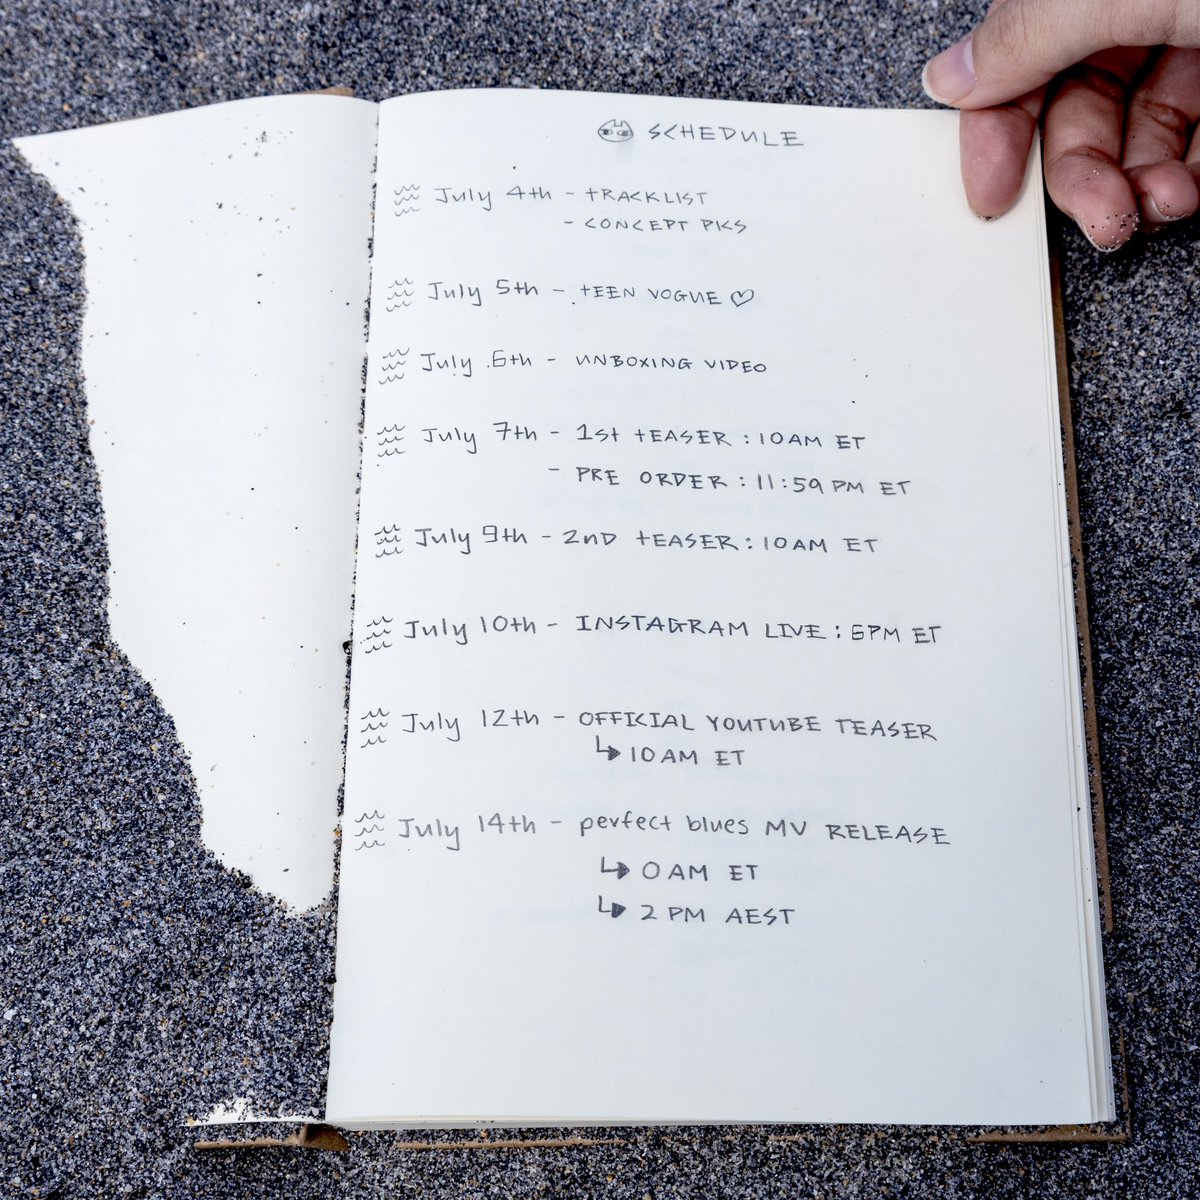 SCHEDULE
July 4th - tRACKLIST
- CONCEPT PICS
July 5th - tEEN VOGUE ♡
July 6th - UNBOXING VIDEO
July 7th - 1st tEASER : 10AM ET
- PRE ORDER : 11:59 PM ET
July 9th - 2nD tEASER : 10AM ET
July 10th - INSTAGRAM LIVE : 6PM ET
July 12th - OFFICIAL YOUTUBE TEASER
↳ 10AM ET
July 14th - perfect blues MV RELEASE
↳ 0AM ET
↳ 2PM AEST